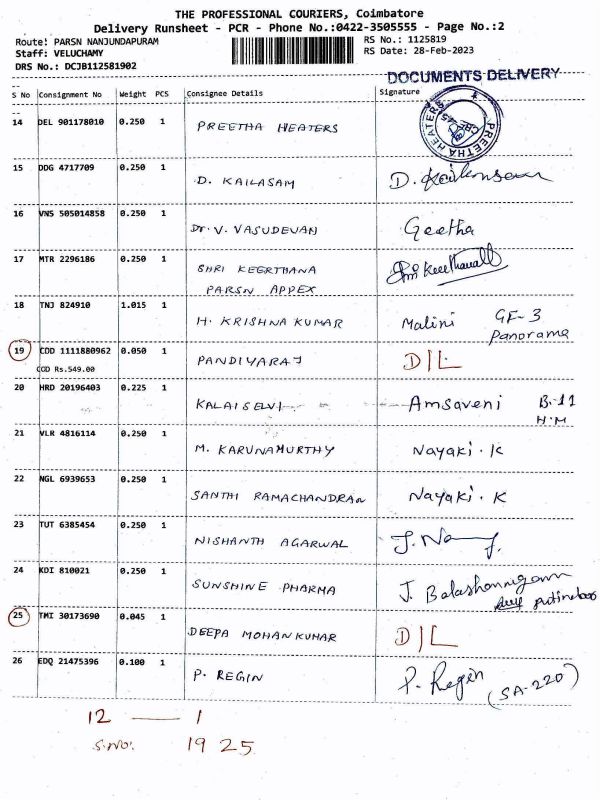 THE PROFESSIONAL COURIERS, Coimbatore
Delivery Runsheet - PCR - Phone No.:0422-3505555 - Page No.:2
Route: PARSN NANJUNDAPURAM
RS No.: 1125819
Staff: VELUCHAMY
RS Date: 28-Feb-2023
DRS No.: DCJB112581902
DOCUMENTS DELIVERY
S No Consignment No Weight PCS Consignee Details Signature
14 DEL 901178010 0.250 1 PREETHA HEATERS PREETHA HEATERS
15 DDG 4717709 0.250 1 D. KAILASAM
16 VNS 505014858 0.250 1 Dr. V. VASUDEVAN Geetha
17 MTR 2296186 0.250 1 SHRI KEERTHANA
PARSN APPEX
18 TNJ 824910 1.015 1 H. KRISHNA KUMAR Malini GF-3
Panorama
19 COD 1111880962 0.050 1 PANDIYARAJ D/L
COD Rs.549.00
20 HRD 20196403 0.225 1 KALAISELVI Amsaveni B-11
H.M
21 VLR 4816114 0.250 1 M. KARUNAMURTHY Nayaki. K
22 NGL 6939653 0.250 1 SANTHI RAMACHANDRAN Nayaki. K
23 TUT 6385454 0.250 1 NISHANTH AGARWAL
24 KDI 810021 0.250 1 SUNSHINE PHARMA J.
25 TMI 30173690 0.045 1 DEEPA MOHANKUMAR D/L
26 EDQ 21475396 0.100 1 P. REGIN P. Regin (SA-220)
12 — 1
S.NO: 19 25